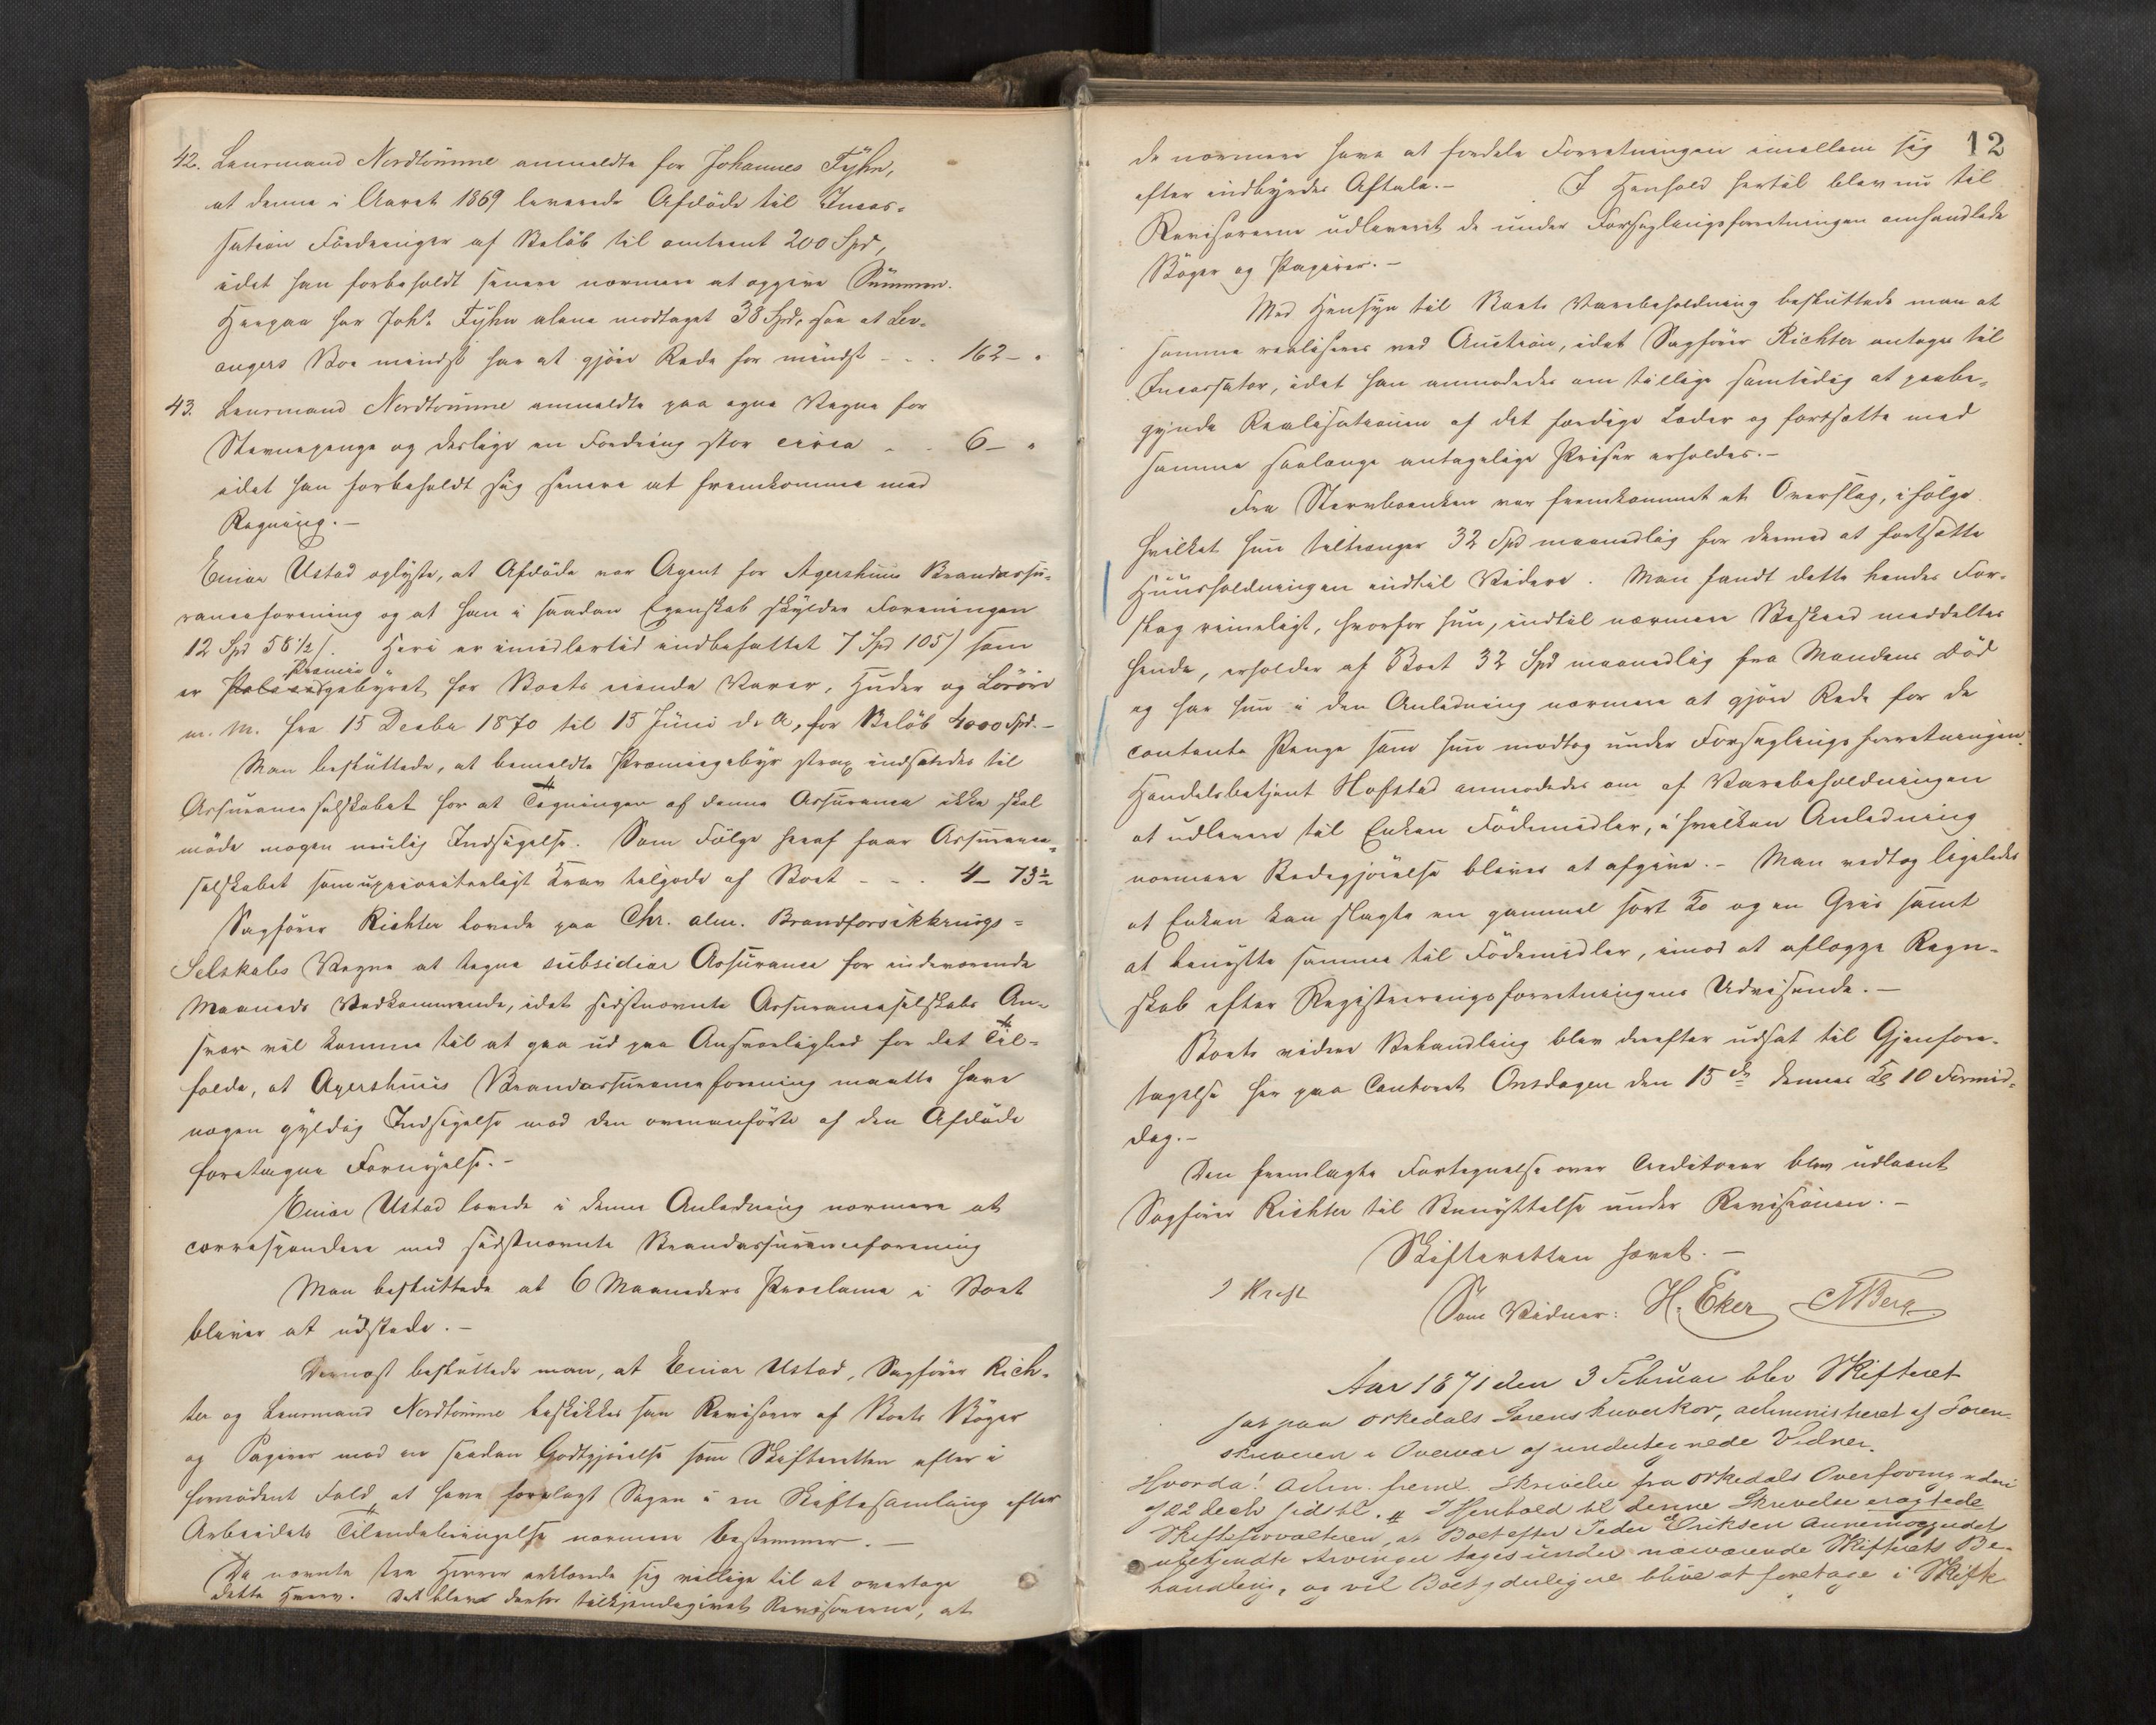 42. Lensmand Nordtømme anmeldte for Johannes Fyhn,
at denne i Aaret 1869 leverede Afdøde til Incas-
sation Fordringer af Beløb til omtrent 200 Spd,
idet han forbeholdt senere nærmere at opgive Summen.
Herpaa har Joh.s Fyhn alene modtaget 38 Spd, saa at Lev-
angers Boe mindst har at gjøre Rede for mindst - - . 162 - "
43. Lensmand Nordtømme anmeldte paa egne Vegne for
Stevnepenge og deslige en Fordring stor circa - - 6 - "
idet han forbeholdt sig senere at fremkomme med
Regning. -
Einar Ustad oplyste, at Afdøde var Agent for Agershuus Brandassu-
ranceforening og at han i saadan Egenskab skylder Foreningen
12 Spd 58 1/2 /. Heri er imidlertid indbefattet 7 Spd 105 / som
Præmie
er gebyret for Boets eiende Varer, Huder og Løsøre
m. M. fra 15 Decbr 1870 til 15 Juni d. A, for Beløb 4000 Spd. -
Man besluttede, at bemeldte Præmiegebyr strax indsendes til
Assuranceselskabet for at Tegningen af denne Assurance ikke skal
møde nogen mulig Indsigelse. Som Følge heraf faar Assurance-
selskabet som uprioriteerligt Krav tilgode af Boet - - . 4 - 73 1/2
Sagfører Richter lovede paa Chr. alm. Brandforsikkrings-
Selskabs Vegne at tegne subsidiær Assurance for indeværende
Maaneds Vedkommende, idet sidstnævnte Assuranceselskabs An-
svar vil komme til at gaa ud paa Ansvarlighed for det Til-
fælde, at Agershuus Brandassuranceforening maatte have
nogen gyldig Indsigelse mod den ovenanførte af den Afdøde
foretagne Fornyelse. -
Einar Ustad lovede i denne Anledning nærmere at
correspondere med sidstnævnte Brandassuranceforening
Man besluttede at 6 Maaneders Proclama i Boet
bliver at udstede. -
Dernæst besluttede man, at Einar Ustad, Sagfører Rich-
ter og Lensmand Nordtømme beskikkes som Revisorer af Boets Bøger
og Papirer mod en saadan Godtgjørelse som Skifteretten efter i
fornødent Fald at have forelagt Sagen i en Skiftesamling efter
Arbeidets Tilendebringelse nærmere bestemmer. -
De nævnte tre Herrer erklærede sig villige til at overtage
dette Hverv. Det blev derfor tilkjendegivet Revisorerne, at
12
de nærmere have at fordele Forretningen imellem sig
efter indbyrdes Aftale. - I Henhold hertil blev nu til
Revisorerne udleveret de under Forseglingsforretningen omhandlede
Bøger og Papirer. -
Med Hensyn til Boets Varebeholdning besluttede man at
samme realiseres ved Auction, idet Sagfører Richter antages til
Incassator, idet han anmodedes om tillige samtidig at paabe-
gynde Realisationen af det færdige Læder og fortsætte med
samme saalænge antagelige Priser erholdes. -
Fra Stervboenken var fremkommet et Overslag, ifølge
hvilket hun tiltrænger 32 Spd maanedlig for dermed at fortsætte
Huusholdningen indtil Videre. Man fandt dette hendes For-
slag rimeligt, hvorfor hun, indtil nærmere Beskeed meddeles
hende, erholder af Boet 32 Spd maanedlig fra Mandens Død
og har hun i den Anledning nærmere at gjøre Rede for de
contante Penge som hun modtog under Forseglingsforretningen.
Handelsbetjent Hofstad anmodedes om af Varebeholdningen
at udlevere til Enken Fødemidler, i hvilken Anledning
nærmere Redegjørelse bliver at afgive. - Man vedtog ligeledes
at Enken kan slagte en gammel sort Ko og en Gris samt
at benytte samme til Fødemidler, imod at aflægge Regn-
skab efter Registreringsforretningens Udvisende. -
Boets videre Behandling blev derefter udsat til Gjenfore-
tagelse her paa Contoret Onsdagen den 15de dennes Kl 10 Formid-
dag. -
Den fremlagte Fortegnelse over Creditorer blev udlaant
Sagfører Richter til Benyttelse under Revisionen. -
Skifteretten hævet. -
J Krest
Som Vidner: H. Eker NBerg
Aar 1871 den 3 Februar blev Skifteret
sat paa Orkedals Sorenskriverkor, administreret af Soren-
skriveren i Overvær af undertegnede Vidner.
Hvorda! Adm. freml. Skrivelse fra Orkedals Overformynderi
af 22 Decbr sidstl. # I Henhold til denne Skrivelse eragtede
Skifteforvalteren, at Boet efter Peder Eriksen Annemog udet
ubekjendte Arvinger tages under nærværende Skifterets Be-
handling, og vil Boet yderligere blive at foretage i Skifte